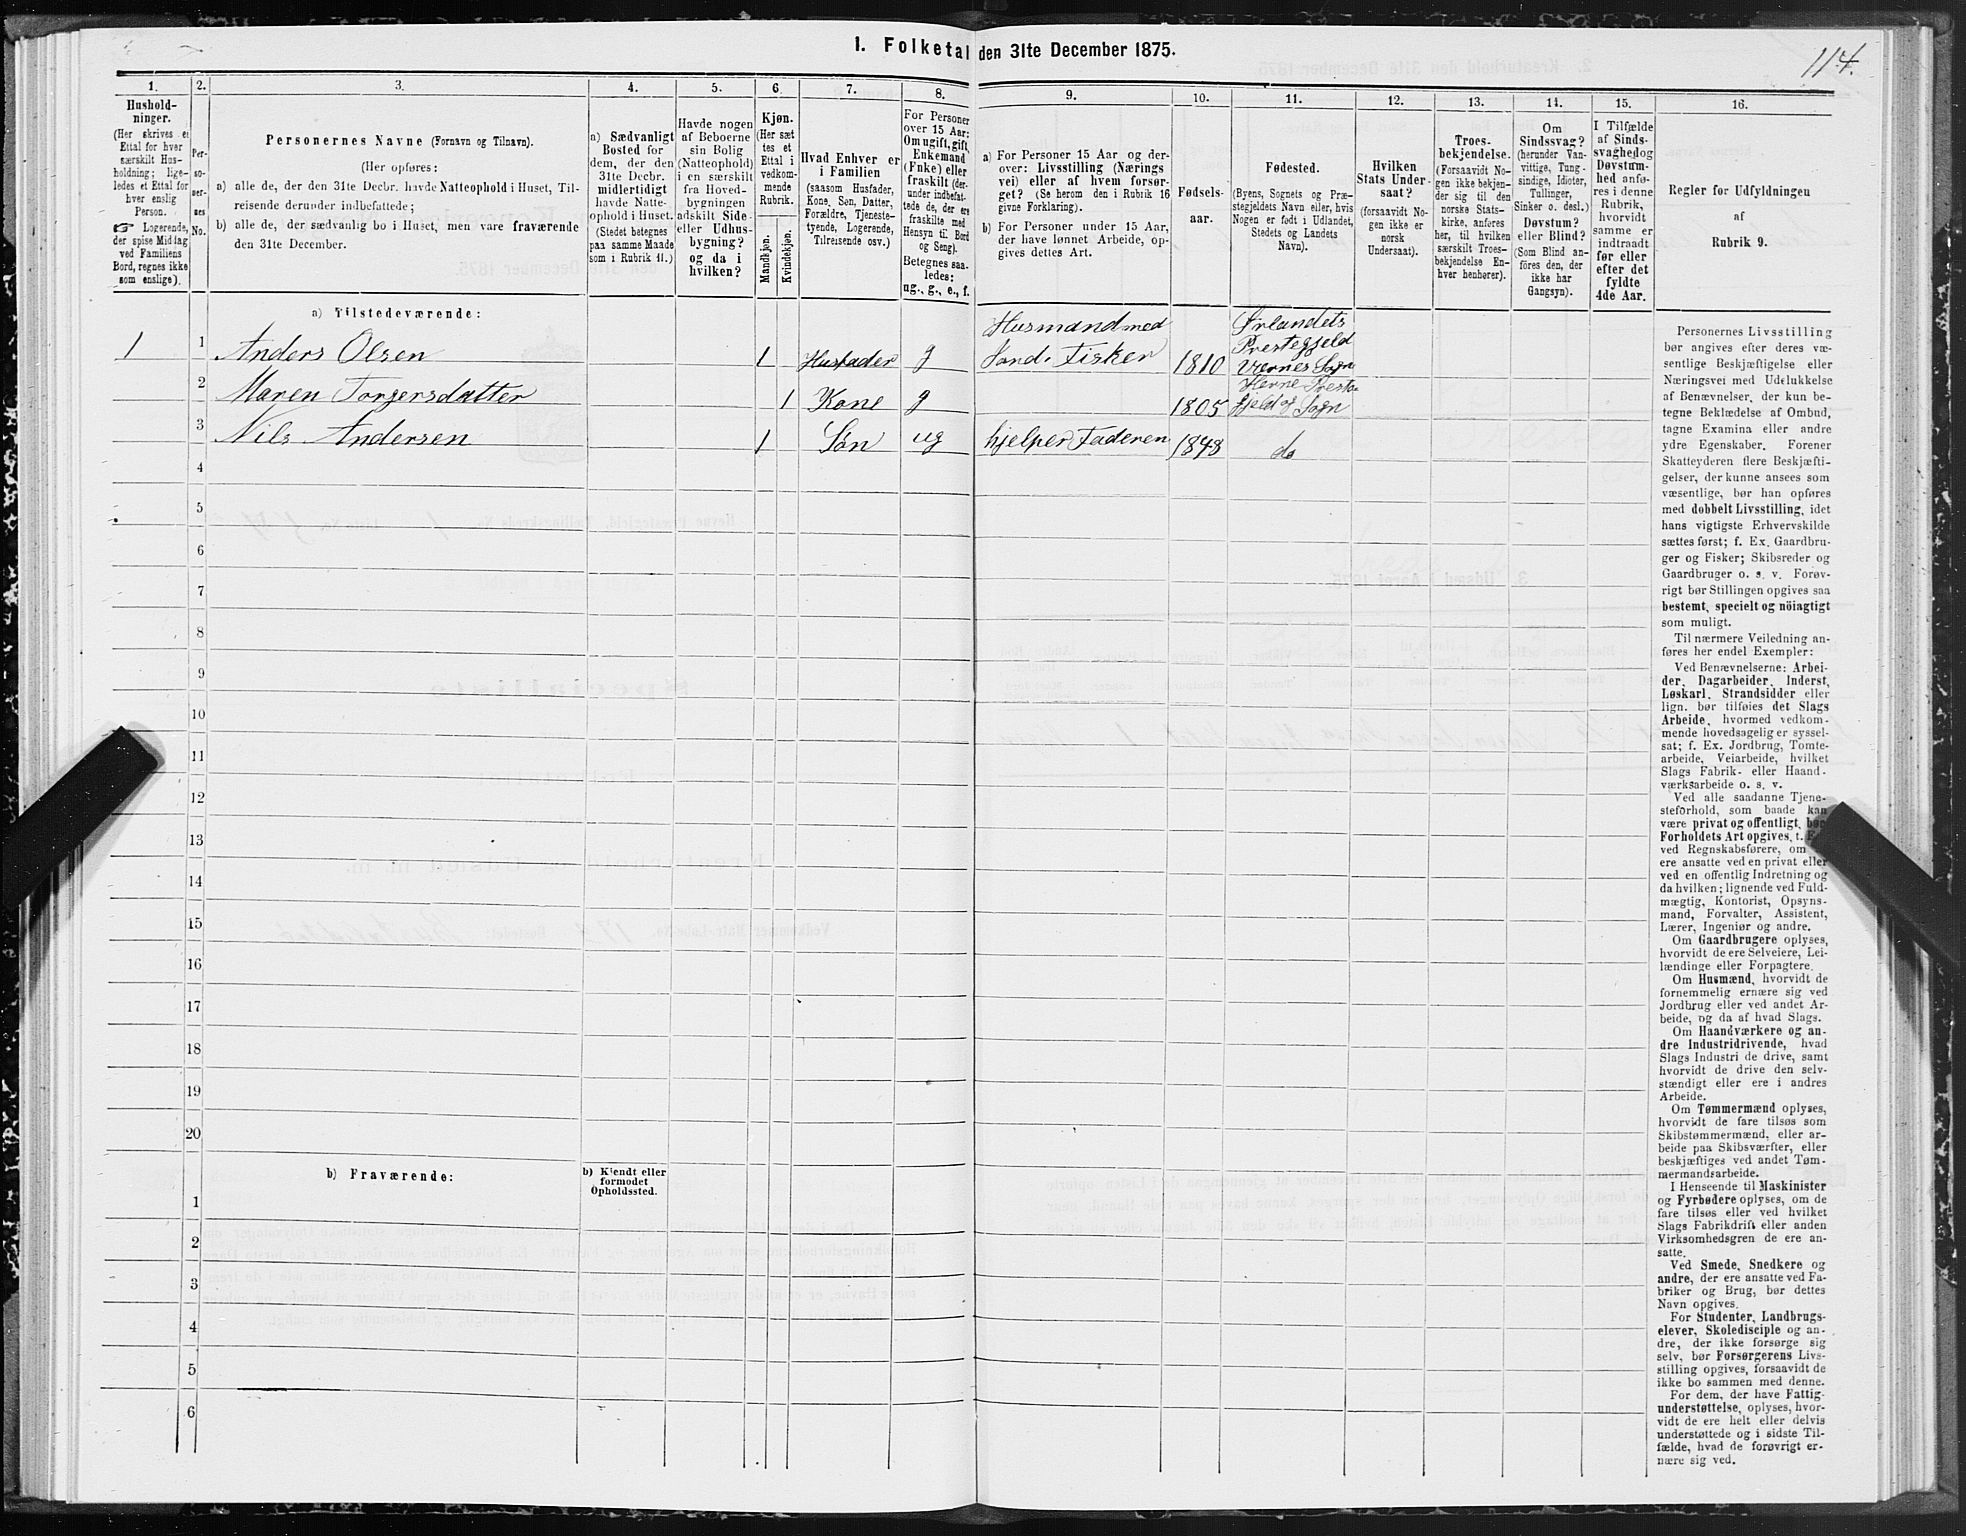 1. Folketal den 31te December 1875.
114.
1.
Hushold-
ninger.
(Her skrives et
Ettal for hver
særskilt Hus-
holdning; lige-
ledes et Ettal for
hver enslig
Person.
☞ Logerende,
der spise Middag
ved Familiens
Bord, regnes ikke
som enslige).
2.
Per-
so-
ner-
nes
No.
3.
Personernes Navne (Fornavn og Tilnavn).
(Her opføres:
a) alle de, der den 31te Decbr. havde Natteophold i Huset, Til-
reisende derunder indbefattede;
b) alle de, der sædvanlig bo i Huset, men vare fraværende
den 31te December.
4.
a) Sædvanligt
Bosted for
dem, der den
31te Decbr.
midlertidigt
havde Natte-
ophold i Huset.
(Stedet betegnes
paa samme Maade
som i Rubrik 11.)
5.
Havde nogen
af Beboerne
sin Bolig
(Natteophold)
i en særskilt
fra Hoved-
bygningen
adskilt Side-
eller Udhus-
bygning?
og da i
hvilken?
6.
Kjøn.
(Her sæt
tes et
Ettal i
vedkom-
mende
Rubrik.
Mandkjøn.
Kvindekjøn.
7.
Hvad Enhver er
i Familien
(saasom Husfader,
Kone, Søn, Datter,
Forældre, Tjeneste-
tyende, Logerende,
Tilreisende osv.)
8.
For Personer
over 15 Aar:
Om ugift, gift,
Enkemand
(Enke) eller
fraskilt (der-
under indbefat-
tede de, der ere
fraskilte med
Hensyn til Bord
og Seng).
Betegnes saa-
ledes:
ug., g., e., f.
9.
a) For Personer 15 Aar og der-
over: Livsstilling (Nærings
vei) eller af hvem forsør-
get? (Se herom den i Rubrik 16
givne Forklaring).
b) For Personer under 15 Aar,
der have lønnet Arbeide, op-
gives dettes Art.
10.
Fødsels-
aar.
11.
Fødested.
(Byens, Sognets og Præ-
stegjeldets Navn eller, hvis
Nogen er født i Udlandet,
Stedets og Landets
Navn).
12.
Hvilken
Stats Under-
saat?
(forsaavidt No-
gen ikke er
norsk
Undersaat).
13.
Troes-
bekjendelse.
(Forsaavidt No-
gen ikke bekjen-
der sig til den
norske Stats-
kirke, anføres
her, til hvilken
særskilt Troes-
bekjendelse En-
hver henhører).
14.
Om
Sindssvag?
(herunder Van-
vittige, Tung-
sindige, Idioter,
Tullinger,
Sinker o. desl.)
Døvstum?
eller Blind?
(Som Blind an-
føres den, der
ikke har
Gangsyn).
15.
I Tilfælde
af Sinds-
svaghed og
Døvstum-
hed anfø-
res i denne
Rubrik,
hvorvidt
samme er
indtraadt
før eller
efter det
fyldte
4de Aar.
16.
Regler for Udfyldningen
af
Rubrik 9.
a) Tilstedeværende:
1 1 Anders Olsen 1 Husfader g Husmand med
Jord. Fisker 1810 Ørlandets
Prestegjeld
Værnes Sogn
2 Maren Torgersdatter 1 Kone g 1805 Hevne Preste
gjeld og Sogn
3 Nils Andersen 1 Søn ug hjelper Faderen 1848 do
4
5
6
7
8
9
10
11
12
13
14
15
16
17
18
19
20
b) Fraværende:
b) Kjendt eller
formodet
Opholdssted.
1
2
3
4
5
6
Personernes Livsstilling
bør angives efter deres væ-
sentlige Beskjæftigelse eller
Næringsvei med Udelukkelse
af Benævnelser, der kun be-
tegne Beklædelse af Ombud,
tagne Examina eller andre
ydre Egenskaber. Forener
Skatteyderen flere Beskjæfti-
gelser, der kunne ansees som
væsentlige, bør han opføres
med dobbelt Livsstilling, idet
hans vigtigste Erhvervskilde
sættes først; f. Ex. Gaardbru-
ger og Fisker; Skibsreder og
Gaardbruger o. s. v. Forøv-
rigt bør Stillingen opgives saa
bestemt, specielt og nöiagtigt
som muligt.
Til nærmere Veiledning an-
føres her endel Exempler:
Ved Benævnelserne: Arbei-
der, Dagarbeider, Inderst,
Løskarl, Strandsidder eller
lign. bør tilføies det Slags
Arbeide, hvormed vedkom-
mende hovedsagelig er syssel-
sat; f. Ex. Jordbrug, Tomte-
arbeide, Veiarbeide, hvilket
Slags Fabrik- eller Haand-
værksarbeide o. s. v.
Ved alle saadanne Tjene-
steforhold, som baade kan
være privat og offentligt, bør
Forholdets Art opgives, t. Ex.
ved Regnskabsførere, om
ere ansatte ved en privat eller
ved en offentlig Indretning og
da hvilken; lignende ved Fuld-
mægtig, Kontorist, Opsyns-
mand, Forvalter, Assistent,
Lærer, Ingeniør og andre.
Om Gaardbrugere oplyses,
hvorvidt de ere Selveiere, Lei-
lændinge eller Forpagtere.
Om Husmænd, hvorvidt de
fornemmelig ernære sig ved
Jordbrug eller ved andet Ar-
beide, og da af hvad Slags.
Om Haandværkere og an-
dre Industridrivende, hvad
Slags Industri de drive, samt
hvorvidt de drive den selv-
stændigt eller ere i andres
Arbeide.
Om Tømmermænd oplyses,
hvorvidt de fare tilsøs som
Skibstømmermænd, eller ar-
beide paa Skibsværfter, eller
beskjæftiges ved andet Tøm-
mermandsarbeide.
I Henseende til Maskinister
og Fyrbødere oplyses, om de
fare tilsøs eller ved hvilket
Slags Fabrikdrift eller anden
Virksomhedsgren de ere an-
satte.
Ved Smede, Snedkere og
andre, der ere ansatte ved Fa-
briker og Brug, bør dettes
Navn opgives.
For Studenter, Landbrugs-
elever, Skoledisciple og an-
dre, der ikke forsørge sig
selv, bør Forsørgerens Livs-
stilling opgives, forsaavidt de
ikke bo sammen med denne.
For dem, der have Fattig-
understøttelse, oplyses, hvor-
vidt de ere helt eller delvis
understøttede og i sidste Til-
fælde, hvad de forøvrigt er-
nære sig ved.